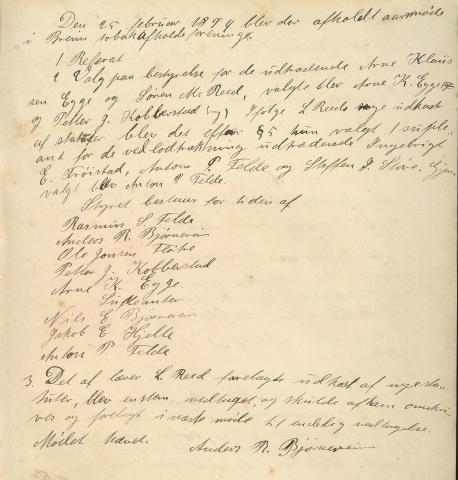 Den 25 februar 1894 blev der afholdt aarsmøde
i Breims totalafholdsforening.
1 Referat
2 Valg paa bestyrelse for de udtrædende Arne Klaus
sen Egge og Søren M. Reed, valgte blev Arne K. Egge
og Petter J. Kobberstad Ifølge L Reeds nye udkast
af statuter blev det efter § 5 kun valgt suple-
ant for de ved lodtrækning udtrædende Ingebrigt
E. Trøistad, Anton P. Felde og Steffen J. Støve. Gjen
valgt blev Anton P Felde.
Styret bestaar for tiden af
Rasmus S. Felde
Anders R. Bjørnereim
Ole Jonsen Fløtre
Petter J. Kobberstad
Arne K. Egge.
Supleanter
Nils E Bjørnereim
Jakob E. Hjelle
Anton P. Felde
3. Det af lærer L. Reed forelagte udkast af nye sta-
tuter, blev enstem. vedtaget, og skulde afham omskri-
ves og forelagt i næste møde til endelig vedtagelse.
Mødet hævet.
Anders R. Bjørnereim